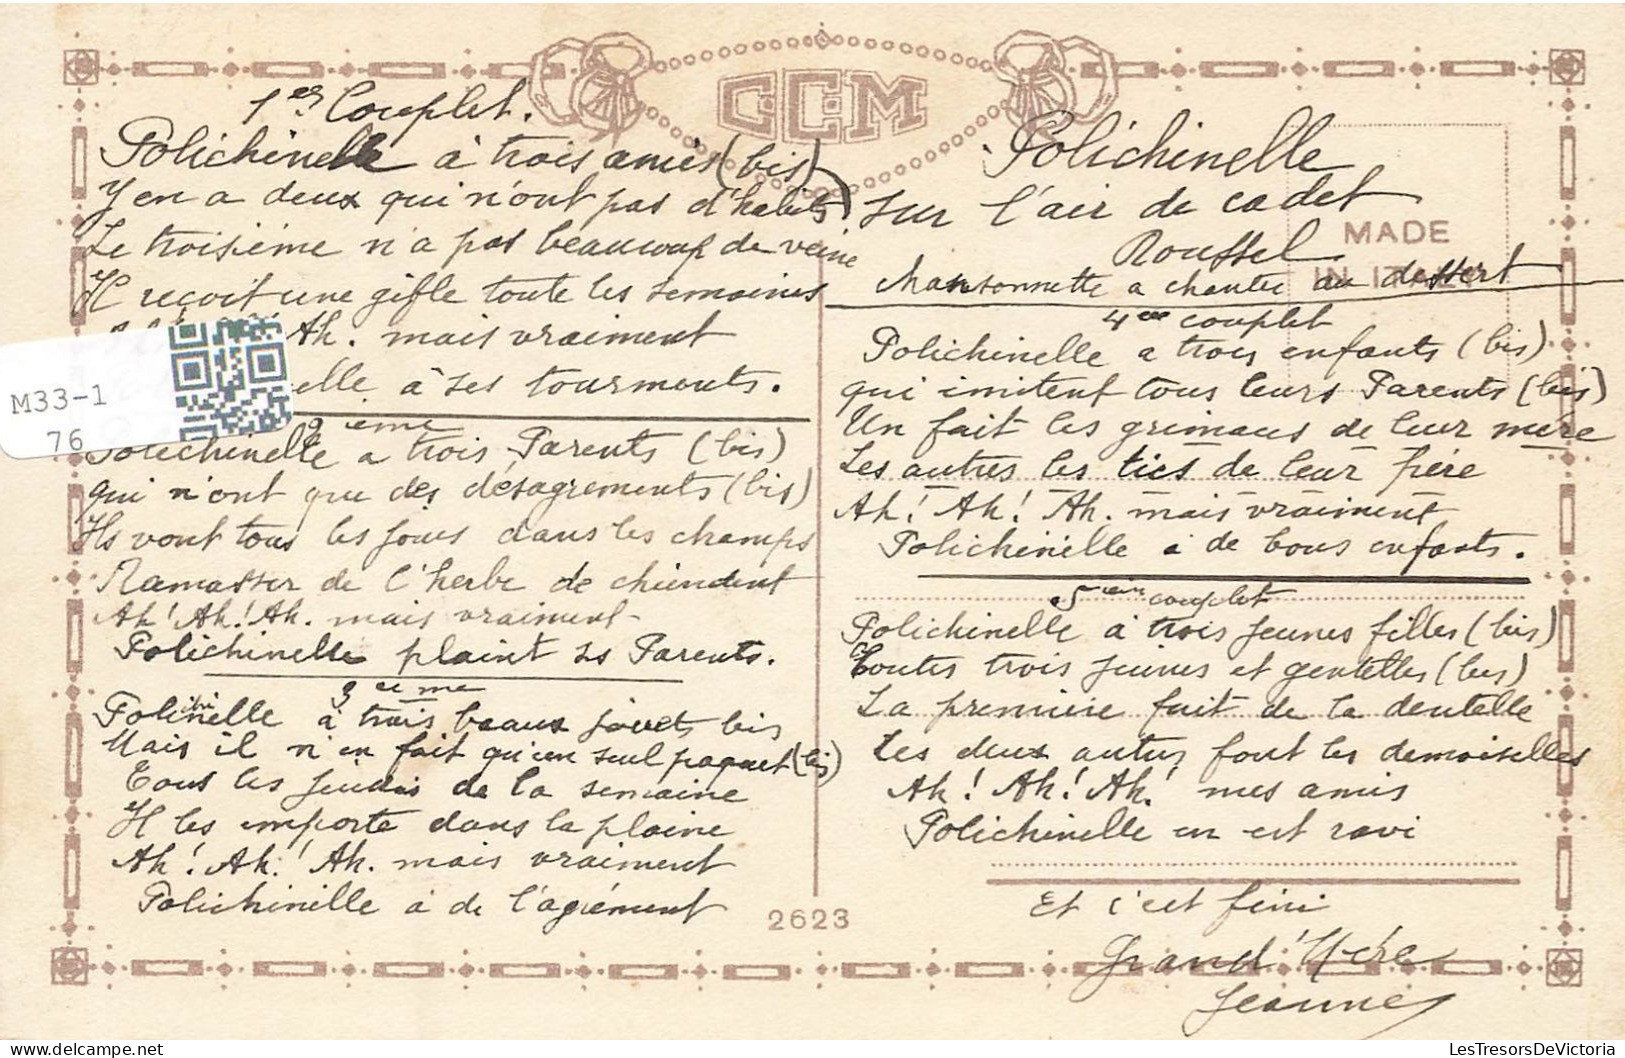 CCM
1er Couplet.
Polichinelle à trois amis (bis)
Y en a deux qui n'ont pas d'habits
Le troisième n'a pas beaucoup de veine
Il reçoit une gifle toute les semaines
Ah. mais vraiment
elle à ses tourments.
2ieme
Polichinelle a trois Parents (bis)
qui n'ont que des désagrements (bis)
Ils vont tous les jours dans les champs
Ramasser de l'herbe de chiendent
Ah! Ah! Ah. mais vraiment
Polichinelle plaint ses Parents.
3 eme
Polichinelle à trois beaux jouets bis
Mais il n'en fait qu'un seul paquet (bis)
Tous les jeudis de la semaine
Il les emporte dans la plaine
Ah! Ah! Ah. mais vraiment
Polichinelle à de l'agrément
Polichinelle
sur l'air de cadet
Roussel
Chansonnette a chanter au dessert
MADE
IN ITALY
4me couplet
Polichinelle a trois enfants (bis)
qui imitent tous leurs Parents (bis)
Un fait les grimaces de leur mère
Les autres les tics de leur père
Ah! Ah! Ah. mais vraiment
Polichinelle à de bons enfants.
5ieme couplet
Polichinelle à trois jeunes filles (bis)
Toutes trois jeunes et gentilles (bis)
La première fait de la dentelle
Les deux autres font les demoiselles
Ah! Ah! Ah! mes amis
Polichinelle en est ravi
Et c'est fini
Grand'Mère
Jeanne
2623
M33-1
76
LesTresorsDeVictoria